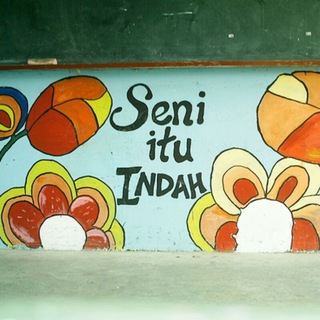 Seni
itu
INDAH